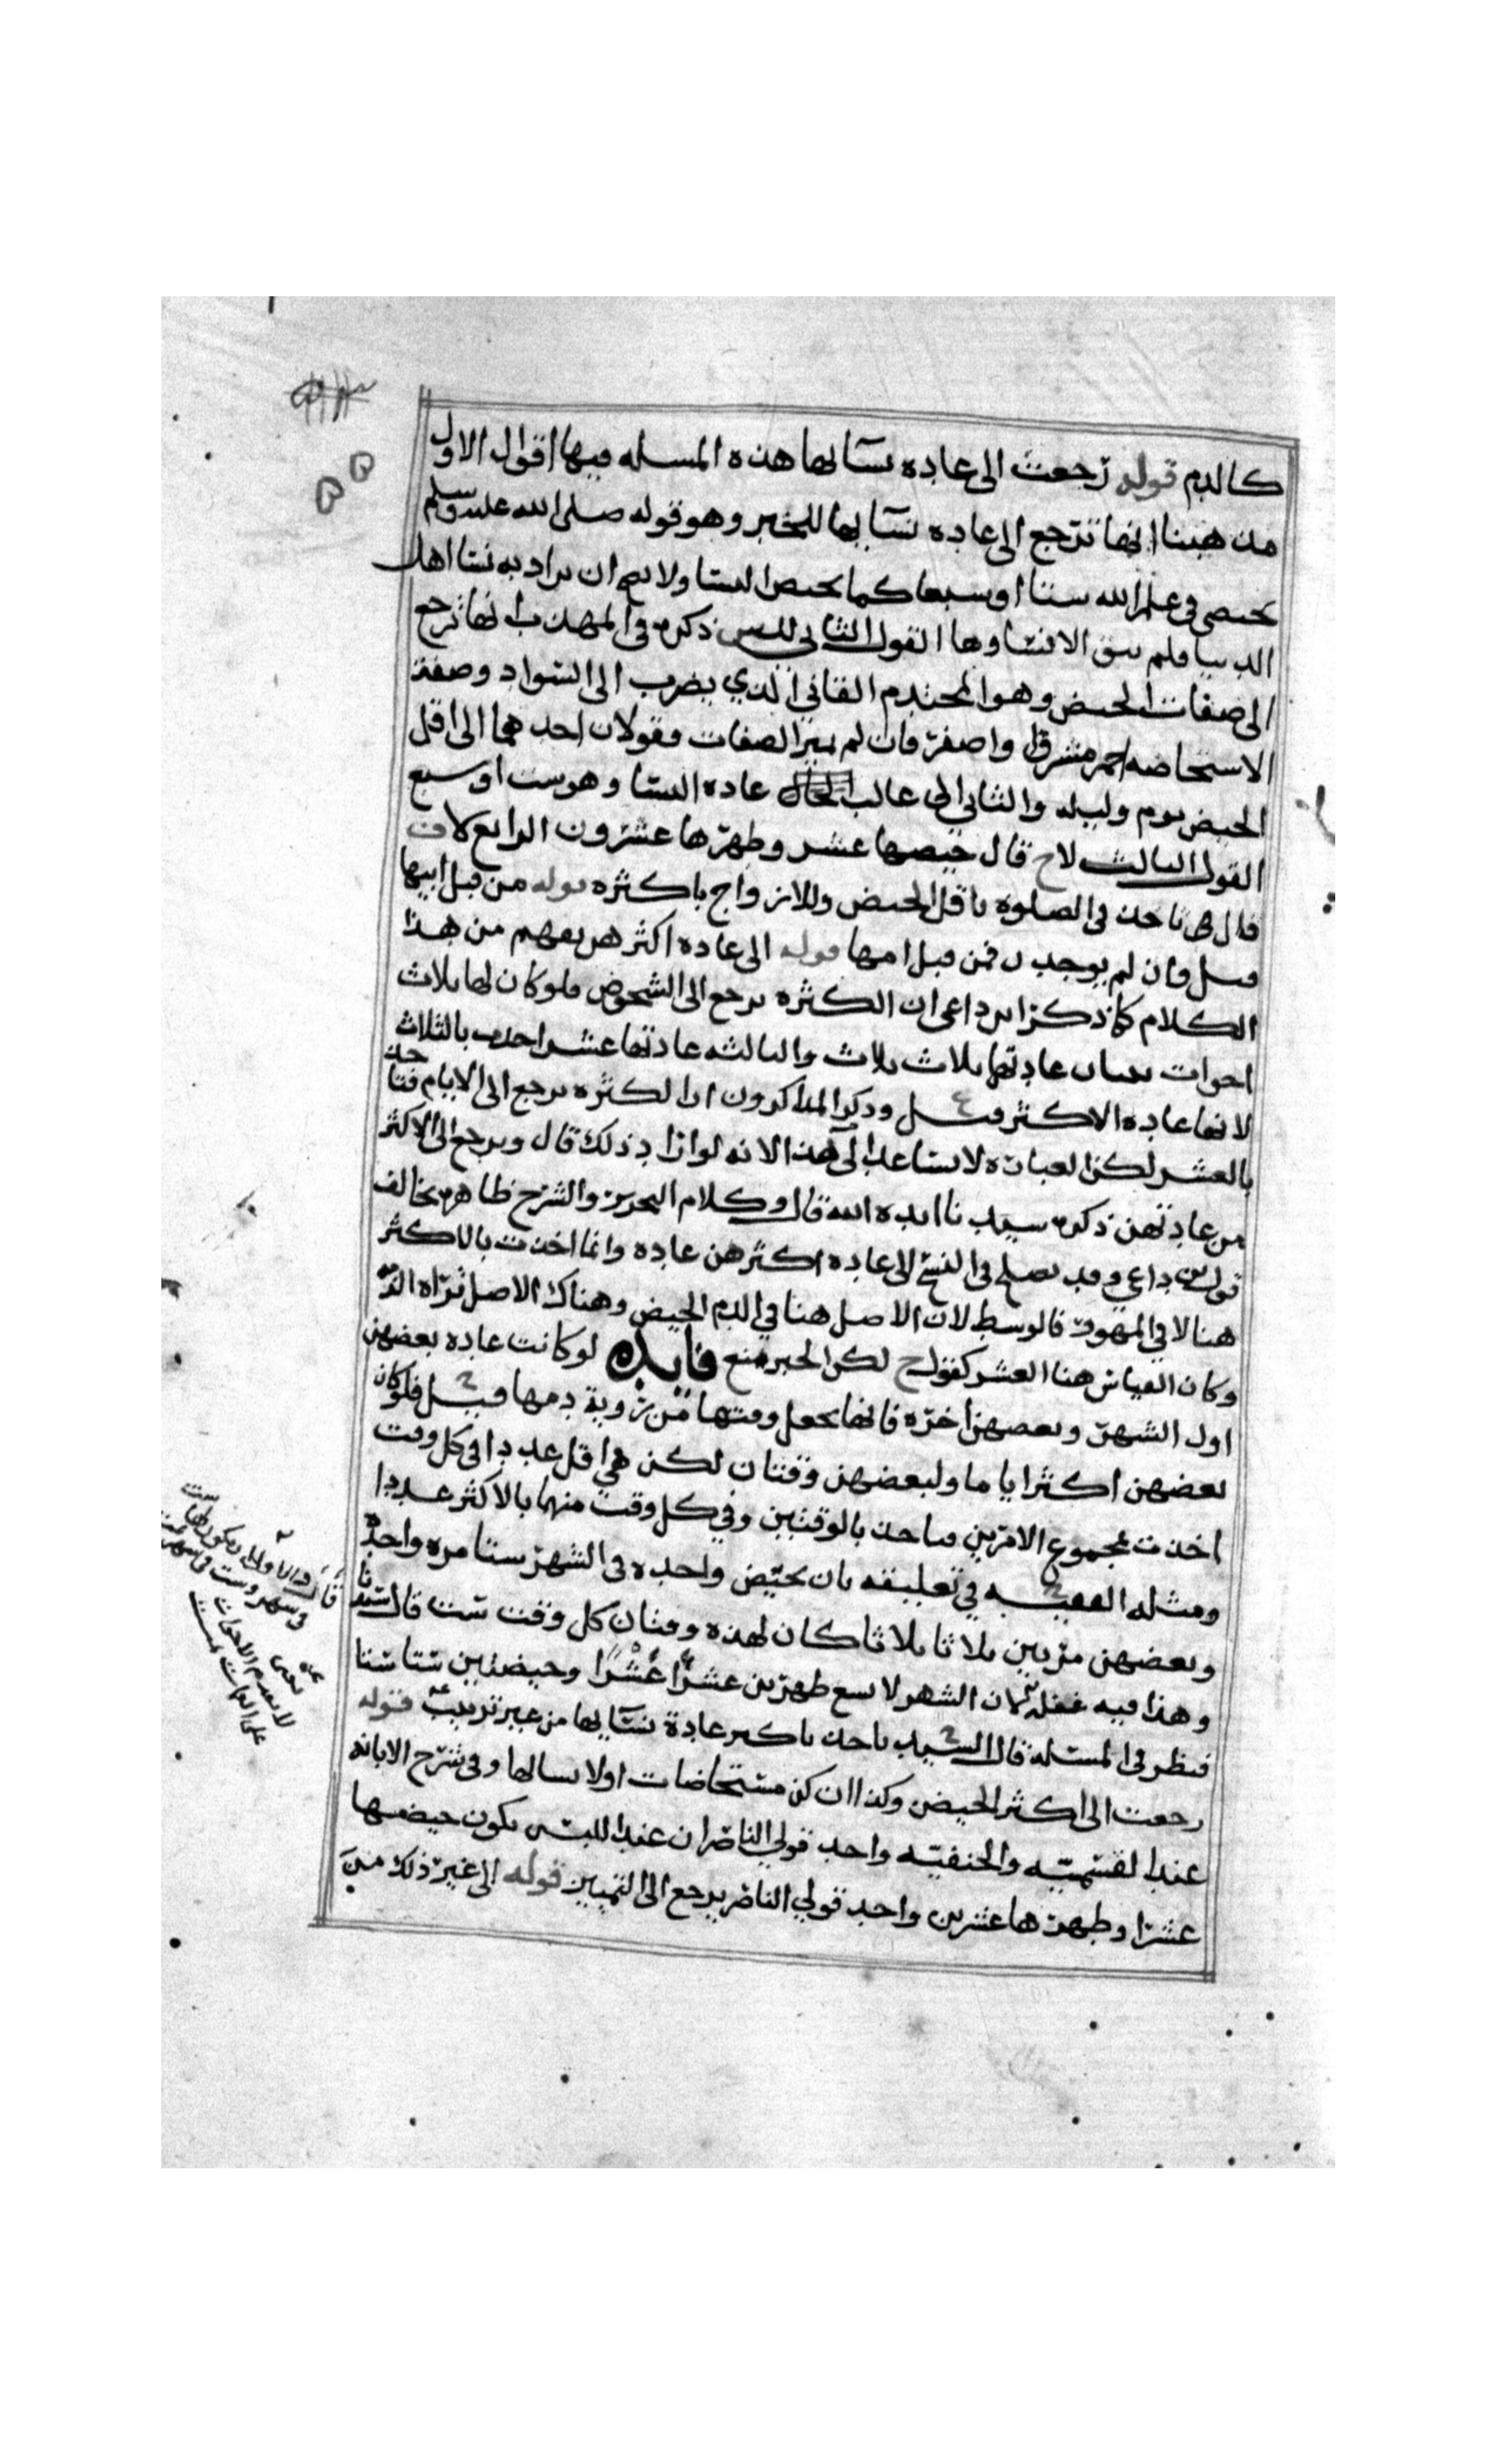 كالدم قوله رجعت الى عاده نسآئها هذه المسله فيها اقوال الاول
مذهبنا انها ترجع الى عاده نسآئها للخبر وهو قوله صلى الله عليه وسلم
تحيضي في علم الله ستا او سبعا كما تحيض النسا ولا يصح ان يراد به نسا اهل
الدنيا فلم يبق الا نساوها القول الثاني للش ذكره في المهذب انها ترجع
الى صفات الحيض وهو المحتدم القاني الذي يضرب الى السواد وصفة
الاستحاضه احمر مشرق او اصفر فان لم تميز الصفات فقولان احدهما الى اقل
الحيض يوم وليله والثاني الى غالب عاده النسا وهو ست او سبع
القول الثالث لاح قال حيضها عشر وطهرها عشرون الرابع لاف
قال في تاخذ في الصلوه باقل الحيض وللازواج باكثره قوله من قبل ابيها
قيل فان لم يوجدن فمن قبل امها قوله الى عاده اكثرهن يفهم من هذا
الكلام كما ذكر ابن داعي ان الكثره يرجع الى الشخوص فلو كان لها ثلاث
اخوات ثنتان عادتهما ثلاث ثلاث والثالثه عادتها عشر اخذت بالثلاث
لانها عاده الاكثر قيل وذكر المذاكرون ان الكثره يرجع الى الايام فتاخذ
بالعشر لكن العباره لا تساعد الى هذا لانه لو اراد ذلك قال ويرجع الى الاكثر
من عادتهن ذكره سيدنا ايده الله قال وكلام البحر والشرح ظاهره يخالف
قول بن داعي وقد يصلح في النسخ الى عاده اكثرهن عاده وانما اخذت بالاكثر
هنا لا في المهور فالوسط لان الاصل هنا في الدم الحيض وهناك الاصل براه الذمه
وكان القياس هنا العشر كقول ح لكن الخبر منع فايده لو كانت عاده بعضهن
اول الشهر وبعضهن اخره فانها تجعل وقتها من روية دمها قيل فلو كان
بعضهن اكثر اياما ولبعضهن وقتان لكن هي اقل عددا في كل وقت
اخذت بمجموع الامرين فتاخذ بالوقتين وفي كل وقت منهما بالاكثر عددا
ومثله الفقيه في تعليقه بان تحيض واحده في الشهر ستا مره واحده
وبعضهن مرتين ثلاثا ثلاثا كان لهذه وقتان كل وقت ست قال سيدنا
وهذا فيه غفله لان الشهر لا يسع طهرين عشرًا عشرًا وحيضتين ستا ستا
فينظر في المسئله قال السيد تاخذ باكثر عادة نسآئها من غير ترتيب قوله
رجعت الى اكثر الحيض وكذا ان كن مستحاضات او لا نسا لها وفي شرح الابانه
عند القسميه والحنفيه واحد قولي الناصر ان عند اللبس يكون حيضها
عشرا وطهرها عشرين واحد قولي الناصر يرجع الى التمييز قوله الى غير ذلك من